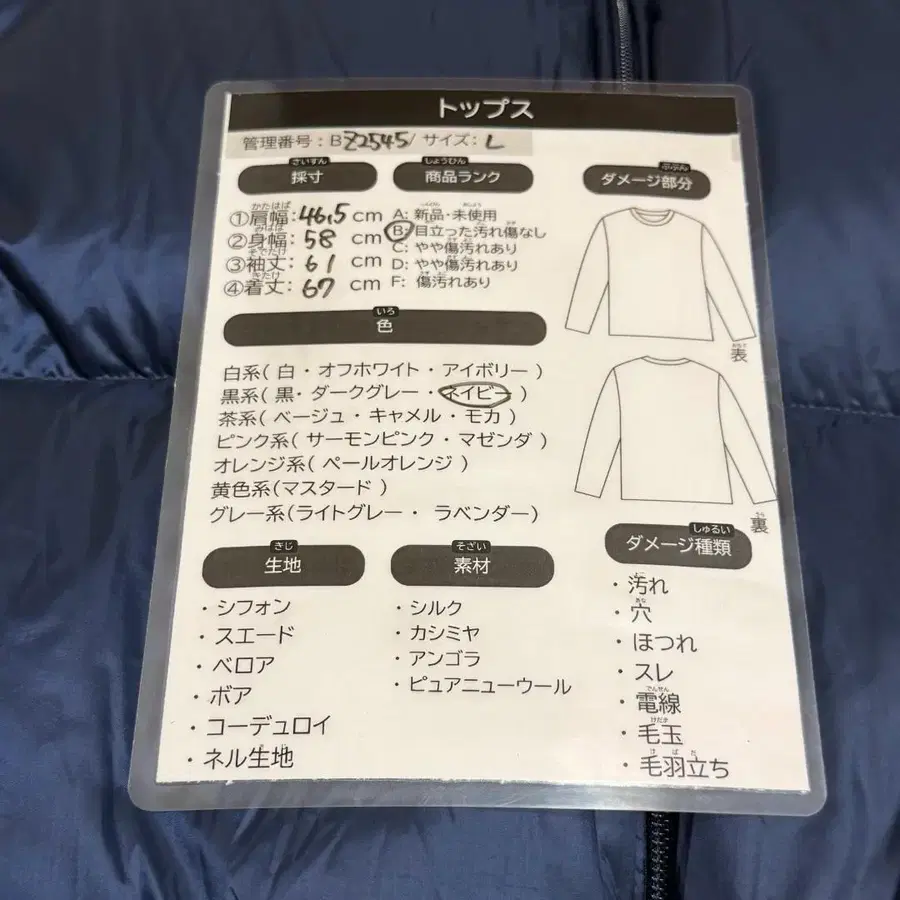 トップス
管理番号：BZ2545/ サイズ：L
さいすん
採寸
しょうひん
商品ランク
ぶぶん
ダメージ部分
かたはば
①肩幅：46,5 cm
みはば
②身幅：58 cm
そでたけ
③袖丈：61 cm
きたけ
④着丈：67 cm
A: 新品・未使用
B: 目立った汚れ傷なし
C: やや傷汚れあり
D: やや傷汚れあり
F: 傷汚れあり
おもて
表
いろ
色
白系( 白・オフホワイト・アイボリー )
黒系( 黒・ダークグレー・ネイビー )
茶系( ベージュ・キャメル・モカ )
ピンク系( サーモンピンク・マゼンダ )
オレンジ系( ペールオレンジ )
黄色系(マスタード )
グレー系(ライトグレー・ ラベンダー)
うら
裏
きじ
生地
・シフォン
・スエード
・ベロア
・ボア
・コーデュロイ
・ネル生地
そざい
素材
・シルク
・カシミヤ
・アンゴラ
・ピュアニューウール
しゅるい
ダメージ種類
・汚れ
あな
・穴
・ほつれ
・スレ
でんせん
・電線
けだま
・毛玉
けばだ
・毛羽立ち